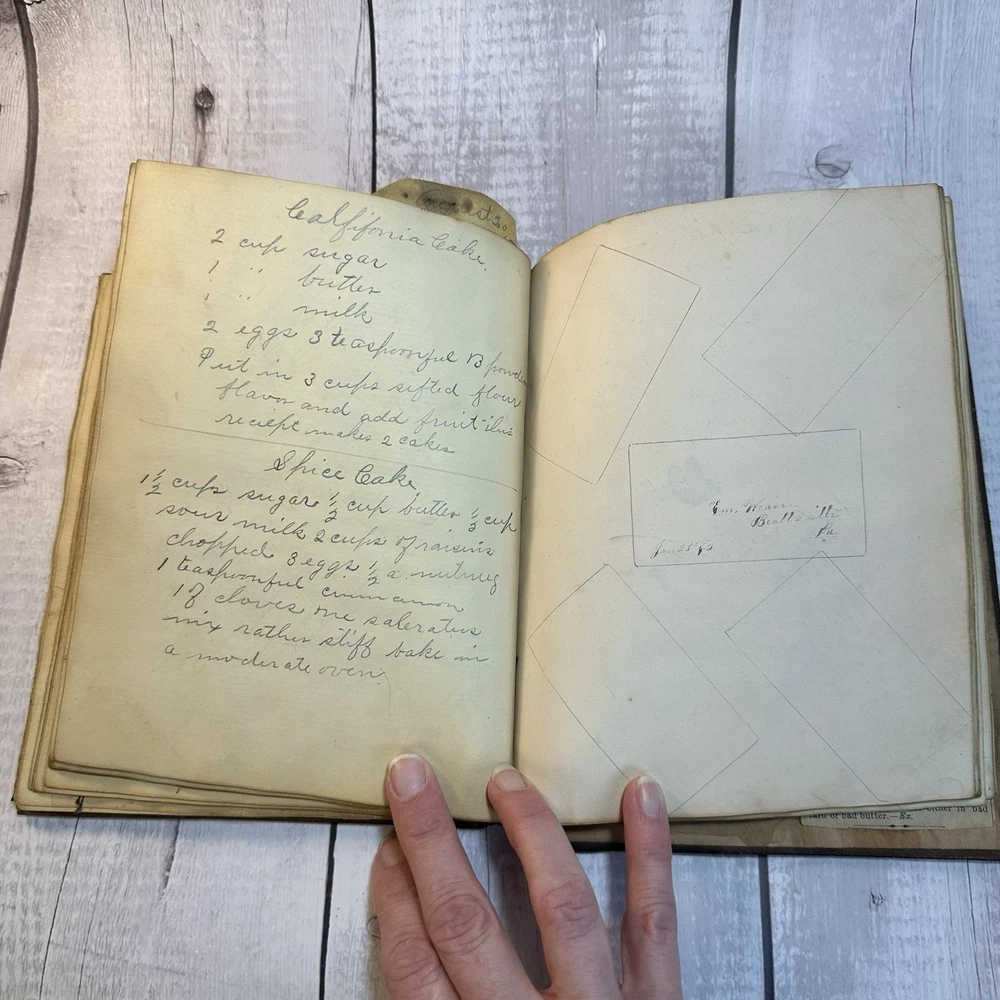 Califfonia Cake.
2 cup sugar
1 " butter
1 " milk
2 eggs 3 teaspoonful B powder
Put in 3 cups sifted flour
flavor and add fruit this
reciept makes 2 cakes
Spice Cake
1 1/2 cups sugar 1/2 cup butter 1/2 cup
sour milk 2 cups of raisins
chopped 3 eggs 1/2 a nutmeg
1 teaspoonful cinnamon
1 of cloves one saleratus
mix rather stiff bake in
a moderate oven.
Em. Weaver
Pa
Jan
either in bad
lard or bad butter.—Ex.